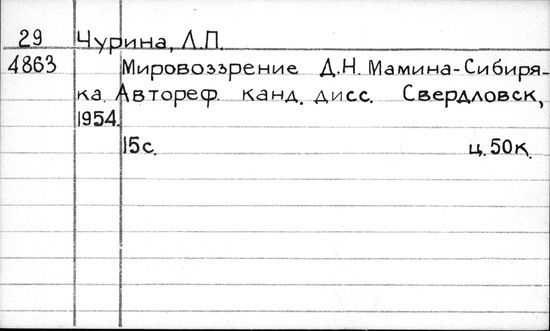 29 Чурина, Л.П.
4863 Мировоззрение Д.Н. Мамина-Сибиря-
ка. Автореф. канд. дисс. Свердловск,
1954.
15с. ц. 50к.